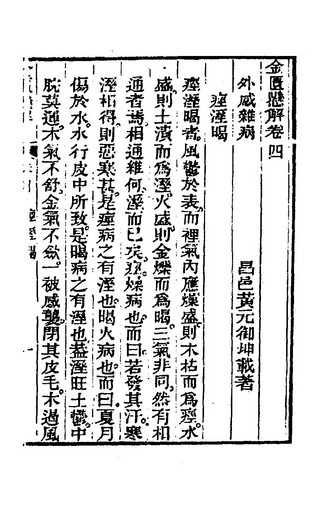 金匱懸解卷四
昌邑黃元御坤載著
外感雜病
痙溼暍
痙溼暍者風鬱於表而裡氣內應燥盛則木枯而為痙水
盛則土濆而為溼火盛則金爍而為暍三氣非同然有相
通者講相通維何溼而已矣痙燥病也而曰若發其汗寒
溼相得則惡寒甚是痙病之有溼也暍火病也而曰夏月
傷於水水行皮中所致是暍病之有溼也蓋溼旺土鬱中
脘莫通木氣不舒金氣不歛一被感襲閉其皮毛木遏風